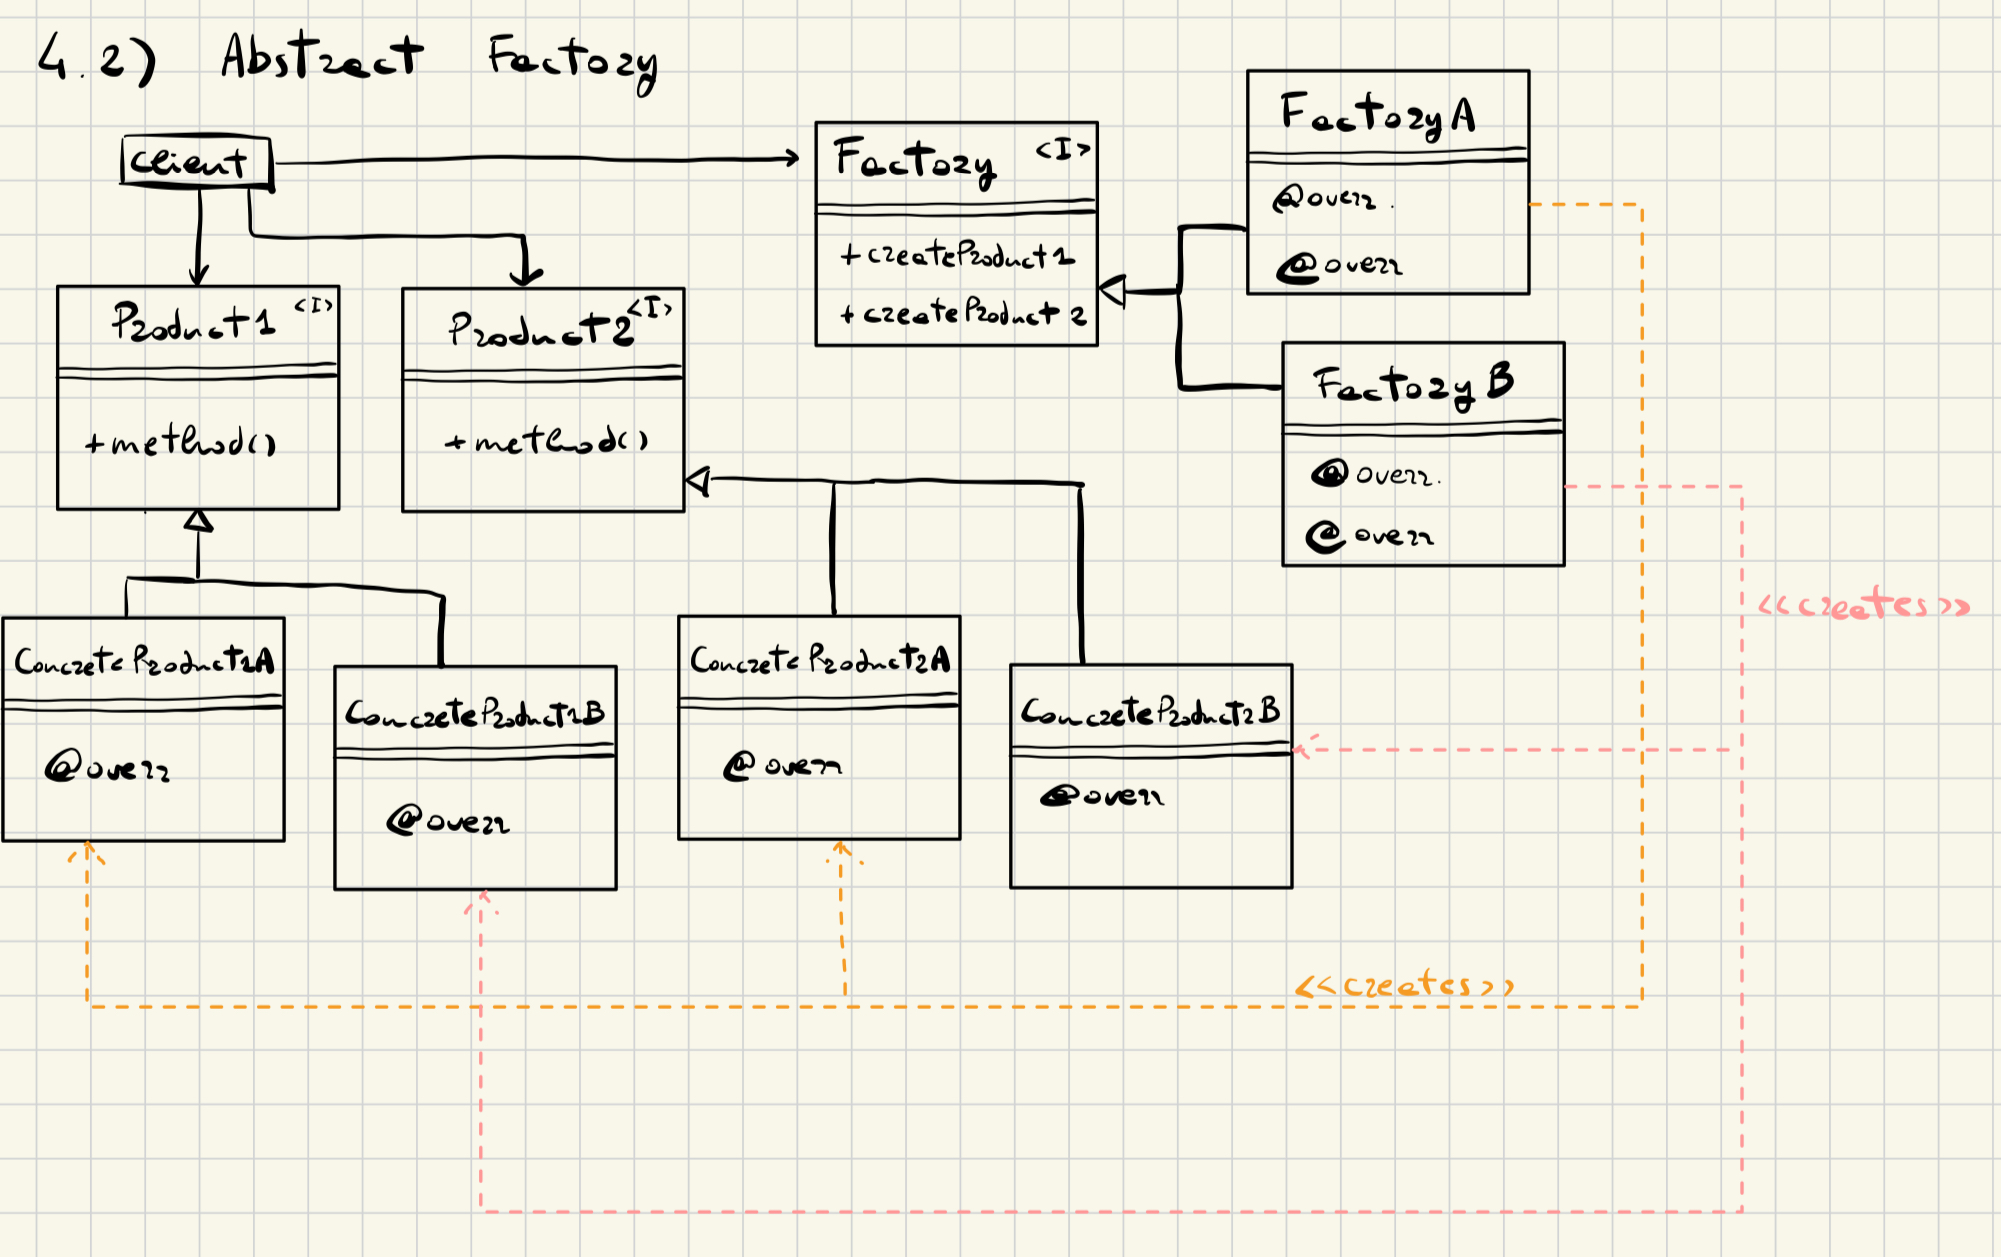 4.2) Abstract Factory
Client
Factory <I>
+createProduct1
+createProduct2
FactoryA
@overr.
@overr
FactoryB
@overr.
@overr
Product1 <I>
+method()
Product2 <I>
+method()
ConcreteProduct1A
@overr
ConcreteProduct1B
@overr
ConcreteProduct2A
@overr
ConcreteProduct2B
@overr
<<creates>>
<<creates>>